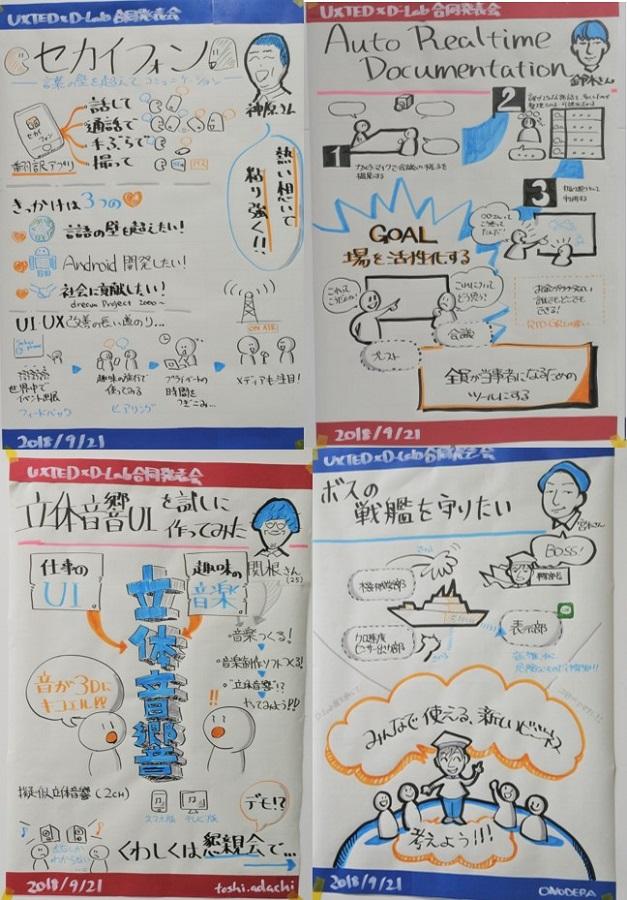 UXTED×D-Lab 合同発表会
セカイフォン
言葉の壁を超えてコミュニケーション
神原さん
話して
通話で
手ぶらで
撮って
セカイフォン
翻訳アプリ
熱い想いで
粘り強く!!
きっかけは3つの
言語の壁を超えたい!
Android 開発したい!
社会に貢献したい!
dream Project 2000~
UI・UX 改善の長い道のり...
ON AIR
世界中で
イベント出展
フィードバック
趣味の旅行で
使ってみる
ヒアリング
プライベートの
時間を
つぎこみ...
メディアも注目!
2018/9/21
UXTED×D-Lab 合同発表会
Auto Realtime
Documentation
鈴木さん
1
2
3
GOAL
場を活性化する
これって
こうだよね!
これについて
どう思う?
会議
ゲスト
誰でもどこでも
できる!
全員が当事者になるための
ツールにする
2018/9/21
UXTED×D-Lab合同発表会
立体音響UI を試しに
作ってみた
関根さん
(25)
仕事の
UI
趣味の
音楽
立体音響
音が3Dに
キコエル!!
音楽つくる!
音楽制作ソフトつくる!
"立体音響"!?
やってみよう!!
!!
擬似立体音響(2CH)
スマホ版
テレビ版
デモ!?
くわしくは懇親会で...
2018/9/21
toshi.adachi
UXTED×D-Lab合同発表会
ボスの
戦艦を守りたい
宮本さん
BOSS!
表示部
みんなで使える、新しいビジネス
考えよう!!!
2018/9/21
ONODERA